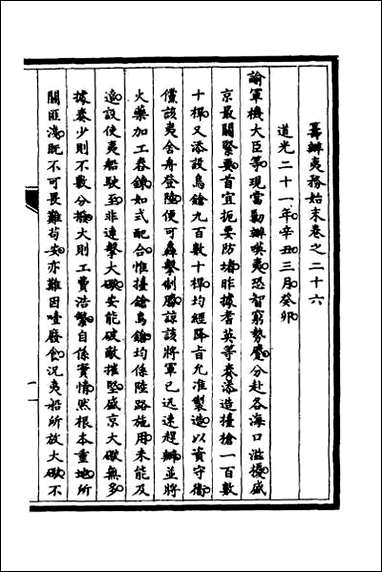 籌辦夷務始末卷之二十六
道光二十一年辛丑三月癸卯
諭軍機大臣等現當勦辦𠸄夷恐智窮勢蹙分赴各海口滋擾盛
京最關緊要首宜扼要防堵昨據耆英等奏添造擡槍一百數
十桿又添設鳥鎗九百數十桿均經降旨允准製造以資守衛
儻該夷舍舟登陸便可轟擊制勝諒該將軍已迅速趕辦並將
火藥加工舂鍊如式配合惟擡鎗鳥鎗均係陸路施用未能及
遠設使夷船駛至非連擊大礮安能破敵摧堅盛京大礮無多
據奏少則不敷分撥大則工費浩繁自係實情然根本重地所
關匪淺旣不可畏難苟安亦難因噎廢食況夷船所放大礮不
一